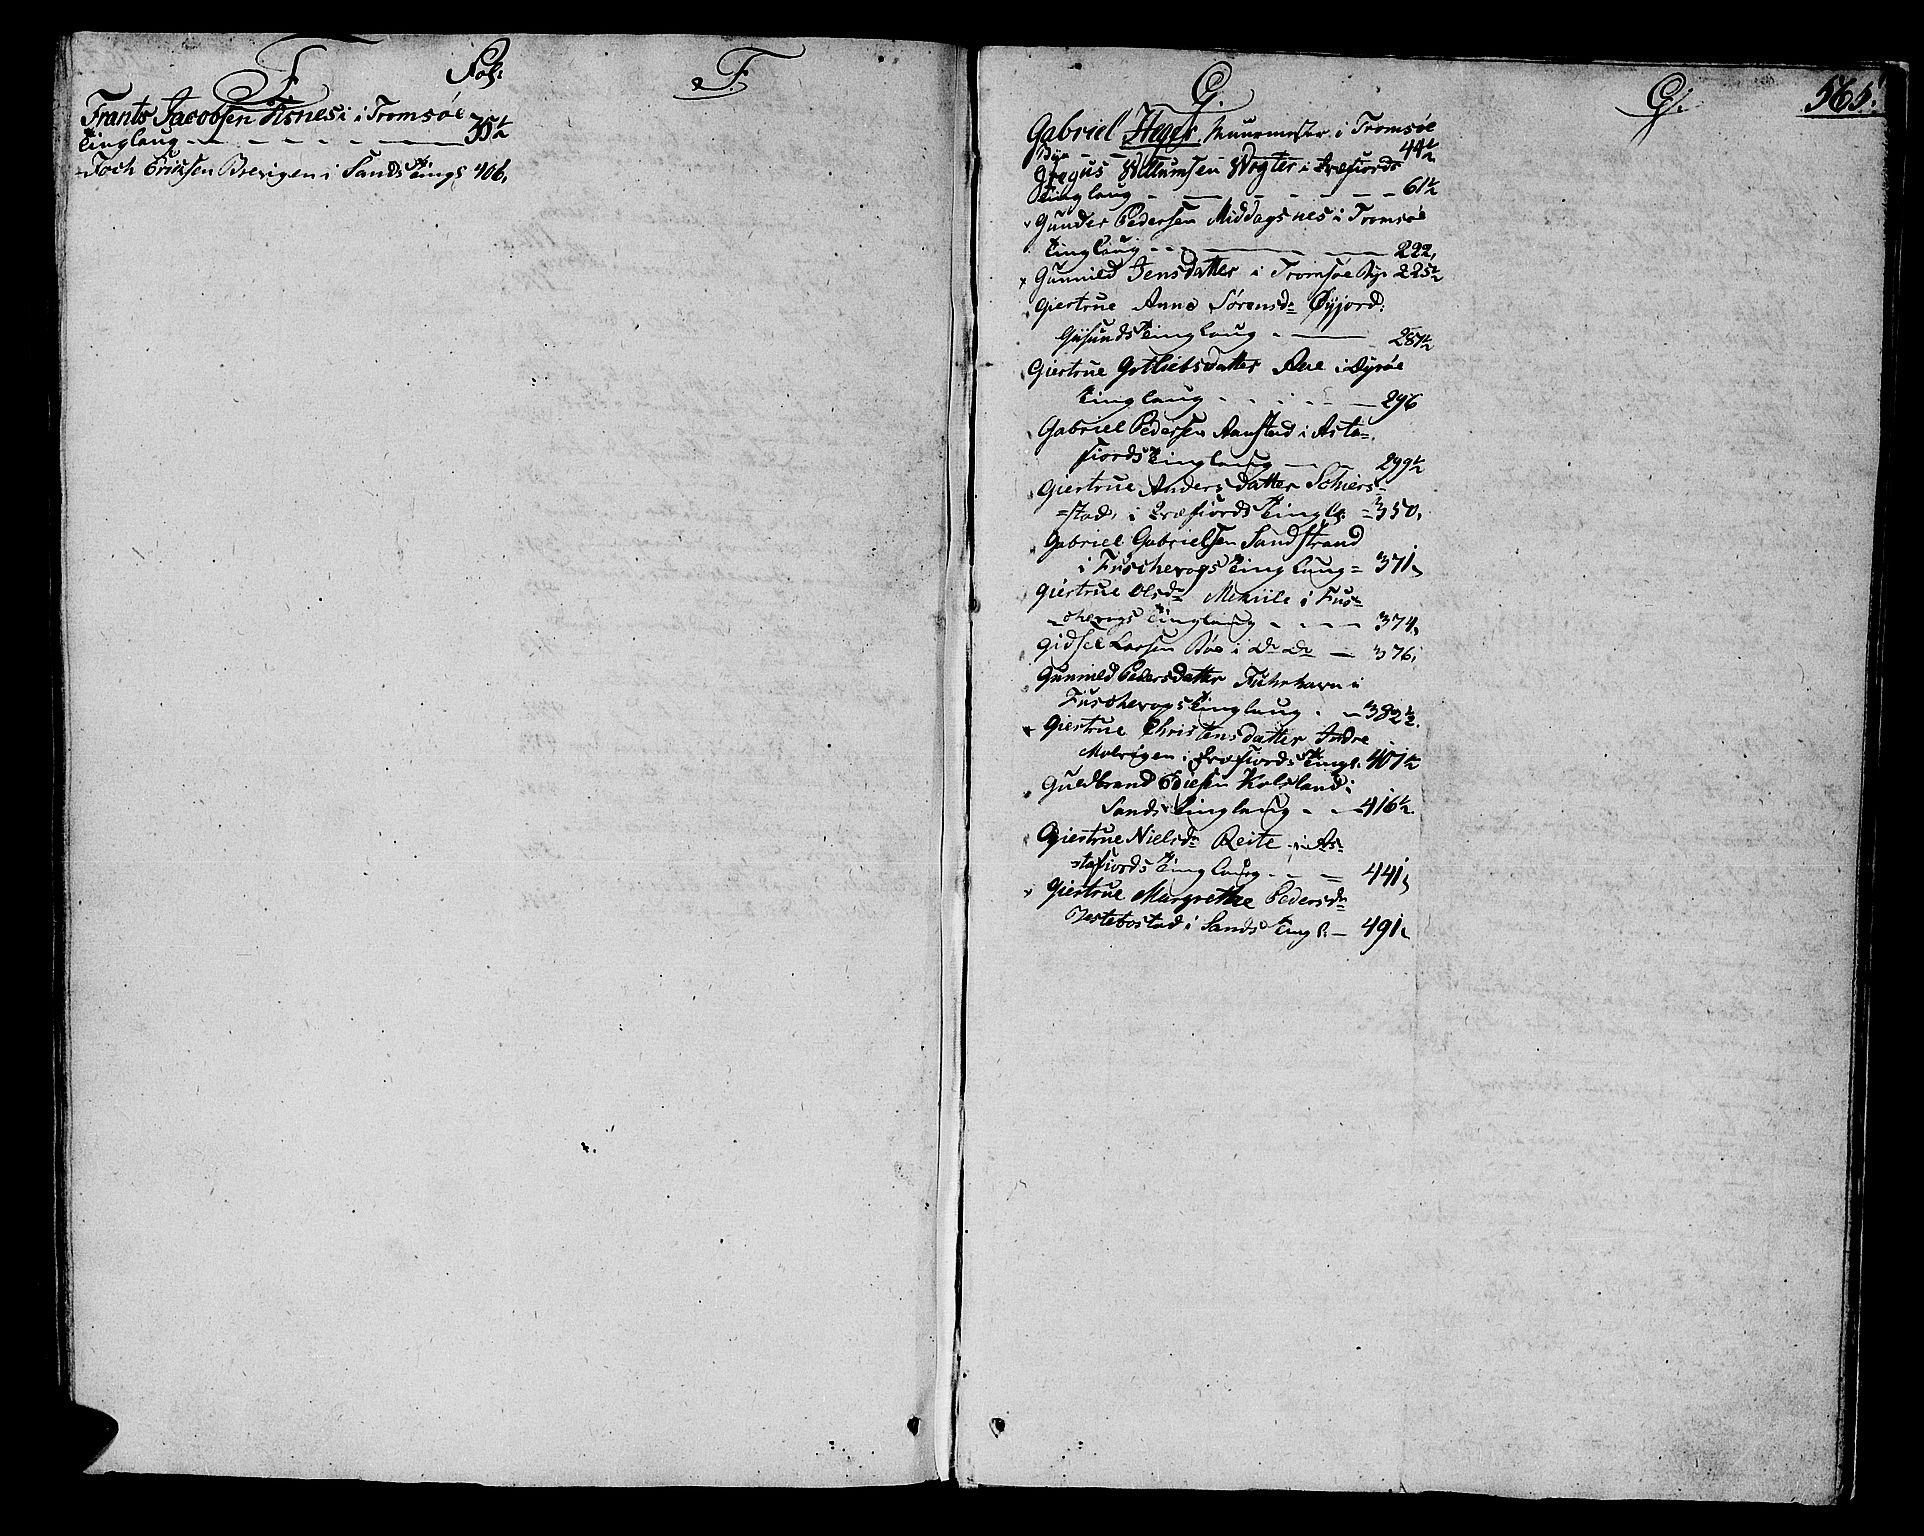 F. Fol: F.
Frants Jacobsen Tisnes i Tromsøe
Tinglaug - - - - - - 35½
Foch Eriksen Brevigen i Sands Tingl 406,
G. G. 565.
Gabriel Heger Muurmester i Tromsøe
Bye - - 44½
Willumsen Wogter i Qvæfiords
Tinglaug - - - - - - 61½
Gunder Pedersen Middagsnes i Tromsøe
Tinglaug - - - - 222,
Gunnild Jensdatter i Tromsøe Bye 225½
Giertrue Anna Sørensdr Øyjord:
Gisunds Tinglaug - - 287½
Giertrue Gotliebsdatter Aae i Dyrøe
Tinglaug - - - - - 296
Gabriel Pedersen Aanstad i Asta-
fiords Tinglaug - - 299½
Giertrue Andersdatter Schiers-
=stad, i Qvæfiords Tingl: = 350,
Gabriel Gabrielsen Sandstrand
i Fuschevogs Tinglaug = 371,
Giertrue Olsdr i Fus-
chevogs Tinglaug - - - - 374,
Gidsel Larsen Bøe i Do Do - 376,
Gunnild Pedersdatter i
Fuschevogs Tinglaug - - 382½.
Giertrue Christensdatter Indre
Molvigen i Qvæfiords Tingl. 407½
Guldbrand Kolsland i
Sands Tinglaug - - 416½.
Giertrue Nielsdr Reite i As-
=tafiords Tinglaug - - = 441,
Giertrue Margrethe Pedersdr
Vestebostad i Sands Tingl: - 491,